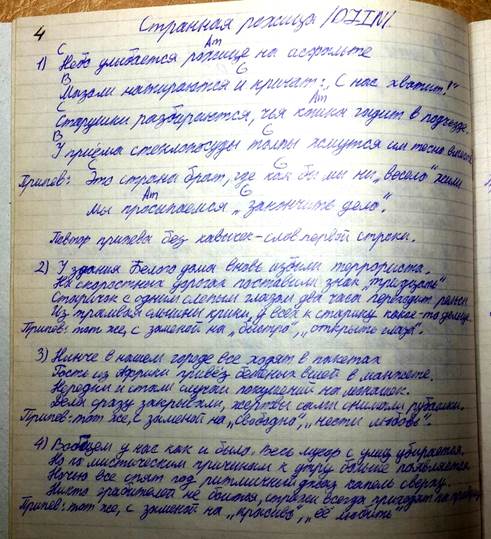 4
Странная рожица /DJIN/
C Am
1) Небо улыбается рожице на асфальте
B G
Мазоли натираются и кричат: „С нас хватит!"
C Am
Старушки разбираются, чья кошка гадит в подъезде.
B G
У приёма стеклопосуды толпы жмутся им тесно вместе.
C G
Припев: Это страна брат, где как бы мы ни „весело" жили
Am G
Мы просыпаемся „закончить дело".
Повтор припева без кавычек-слов первой строки.
2) У здания Белого дома вновь избили террориста.
На скоростных дорогах поставили знак „три дцать"
Старичок с одним слепым глазом два часа переходит рельсы
Из трамвая слышны крики, у всех к старику какое-то дельце.
Припев: тот же, с заменой на „быстро", „открыть глаза".
3) Нынче в нашем городе все ходят в пакетах
Гость из Африки привёз бешеных вшей в манжете.
Нередки и стали случаи покушений на монашек.
Дела сразу закрывали, жертвы сами снимали рубашки.
Припев: тот же, с заменой на „свободно", „нести любовь".
4) Вобщем у нас как и было. Весь мусор с улиц убирается.
Но по мистическим причинам к утру больше появляется.
Ночью все спят под ритмичный джаз капель сверху.
Никто грабителей не боится, всегда
Припев: тот же, с заменой на „красиво", „её любить"